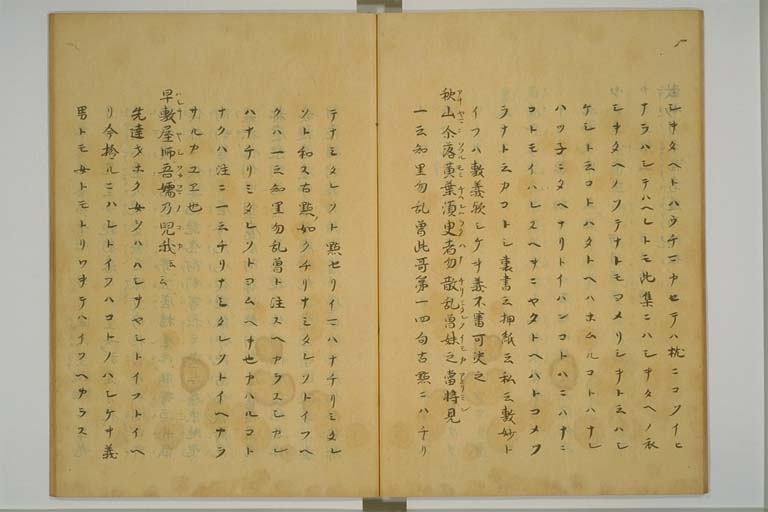 シキタヘトハウチニカセテハ枕ニコソイヒ
ナラハシテハヘレトモ此集ニハシキタヘノ衣
シキタヘノソテナトモヨメリシナトミハシ
ケシト云コトハタトヘハホムルコトハナレ
ハツ子ニタヘナリトイハンコトハニハナニ
コトモイハレスヘキニヤタトヘハトコメツ
ラナト云カコトシ裏書云押紙云私云敷妙ト
イフハ敷義歟シケキ義不審可決之
秋山尒落黄葉須臾者勿散乱曽妹之當将見
一云知里勿乱曽此哥第一四句古點ニハチリ
テナミタレソト點セリイマハナチリミタレ
ソト和ス古點ノ如クチリナミタレソトイフヘ
クハ一云知里勿乱曽ト注スヘカラスシカレ
ハナチリミタレソトヨムヘキ也カハルコト
ナクハ注ニ一云チリナミタレソトイヘナラ
サルカユヱ也
早敷屋師吾嬬乃兒我云云
先達オホク女ヲハハシキヤシトイフトイヘ
リ今捡ルニハシトイフハコトノハシケキ義
男トモ女トモトリワキテハイフヘカラス